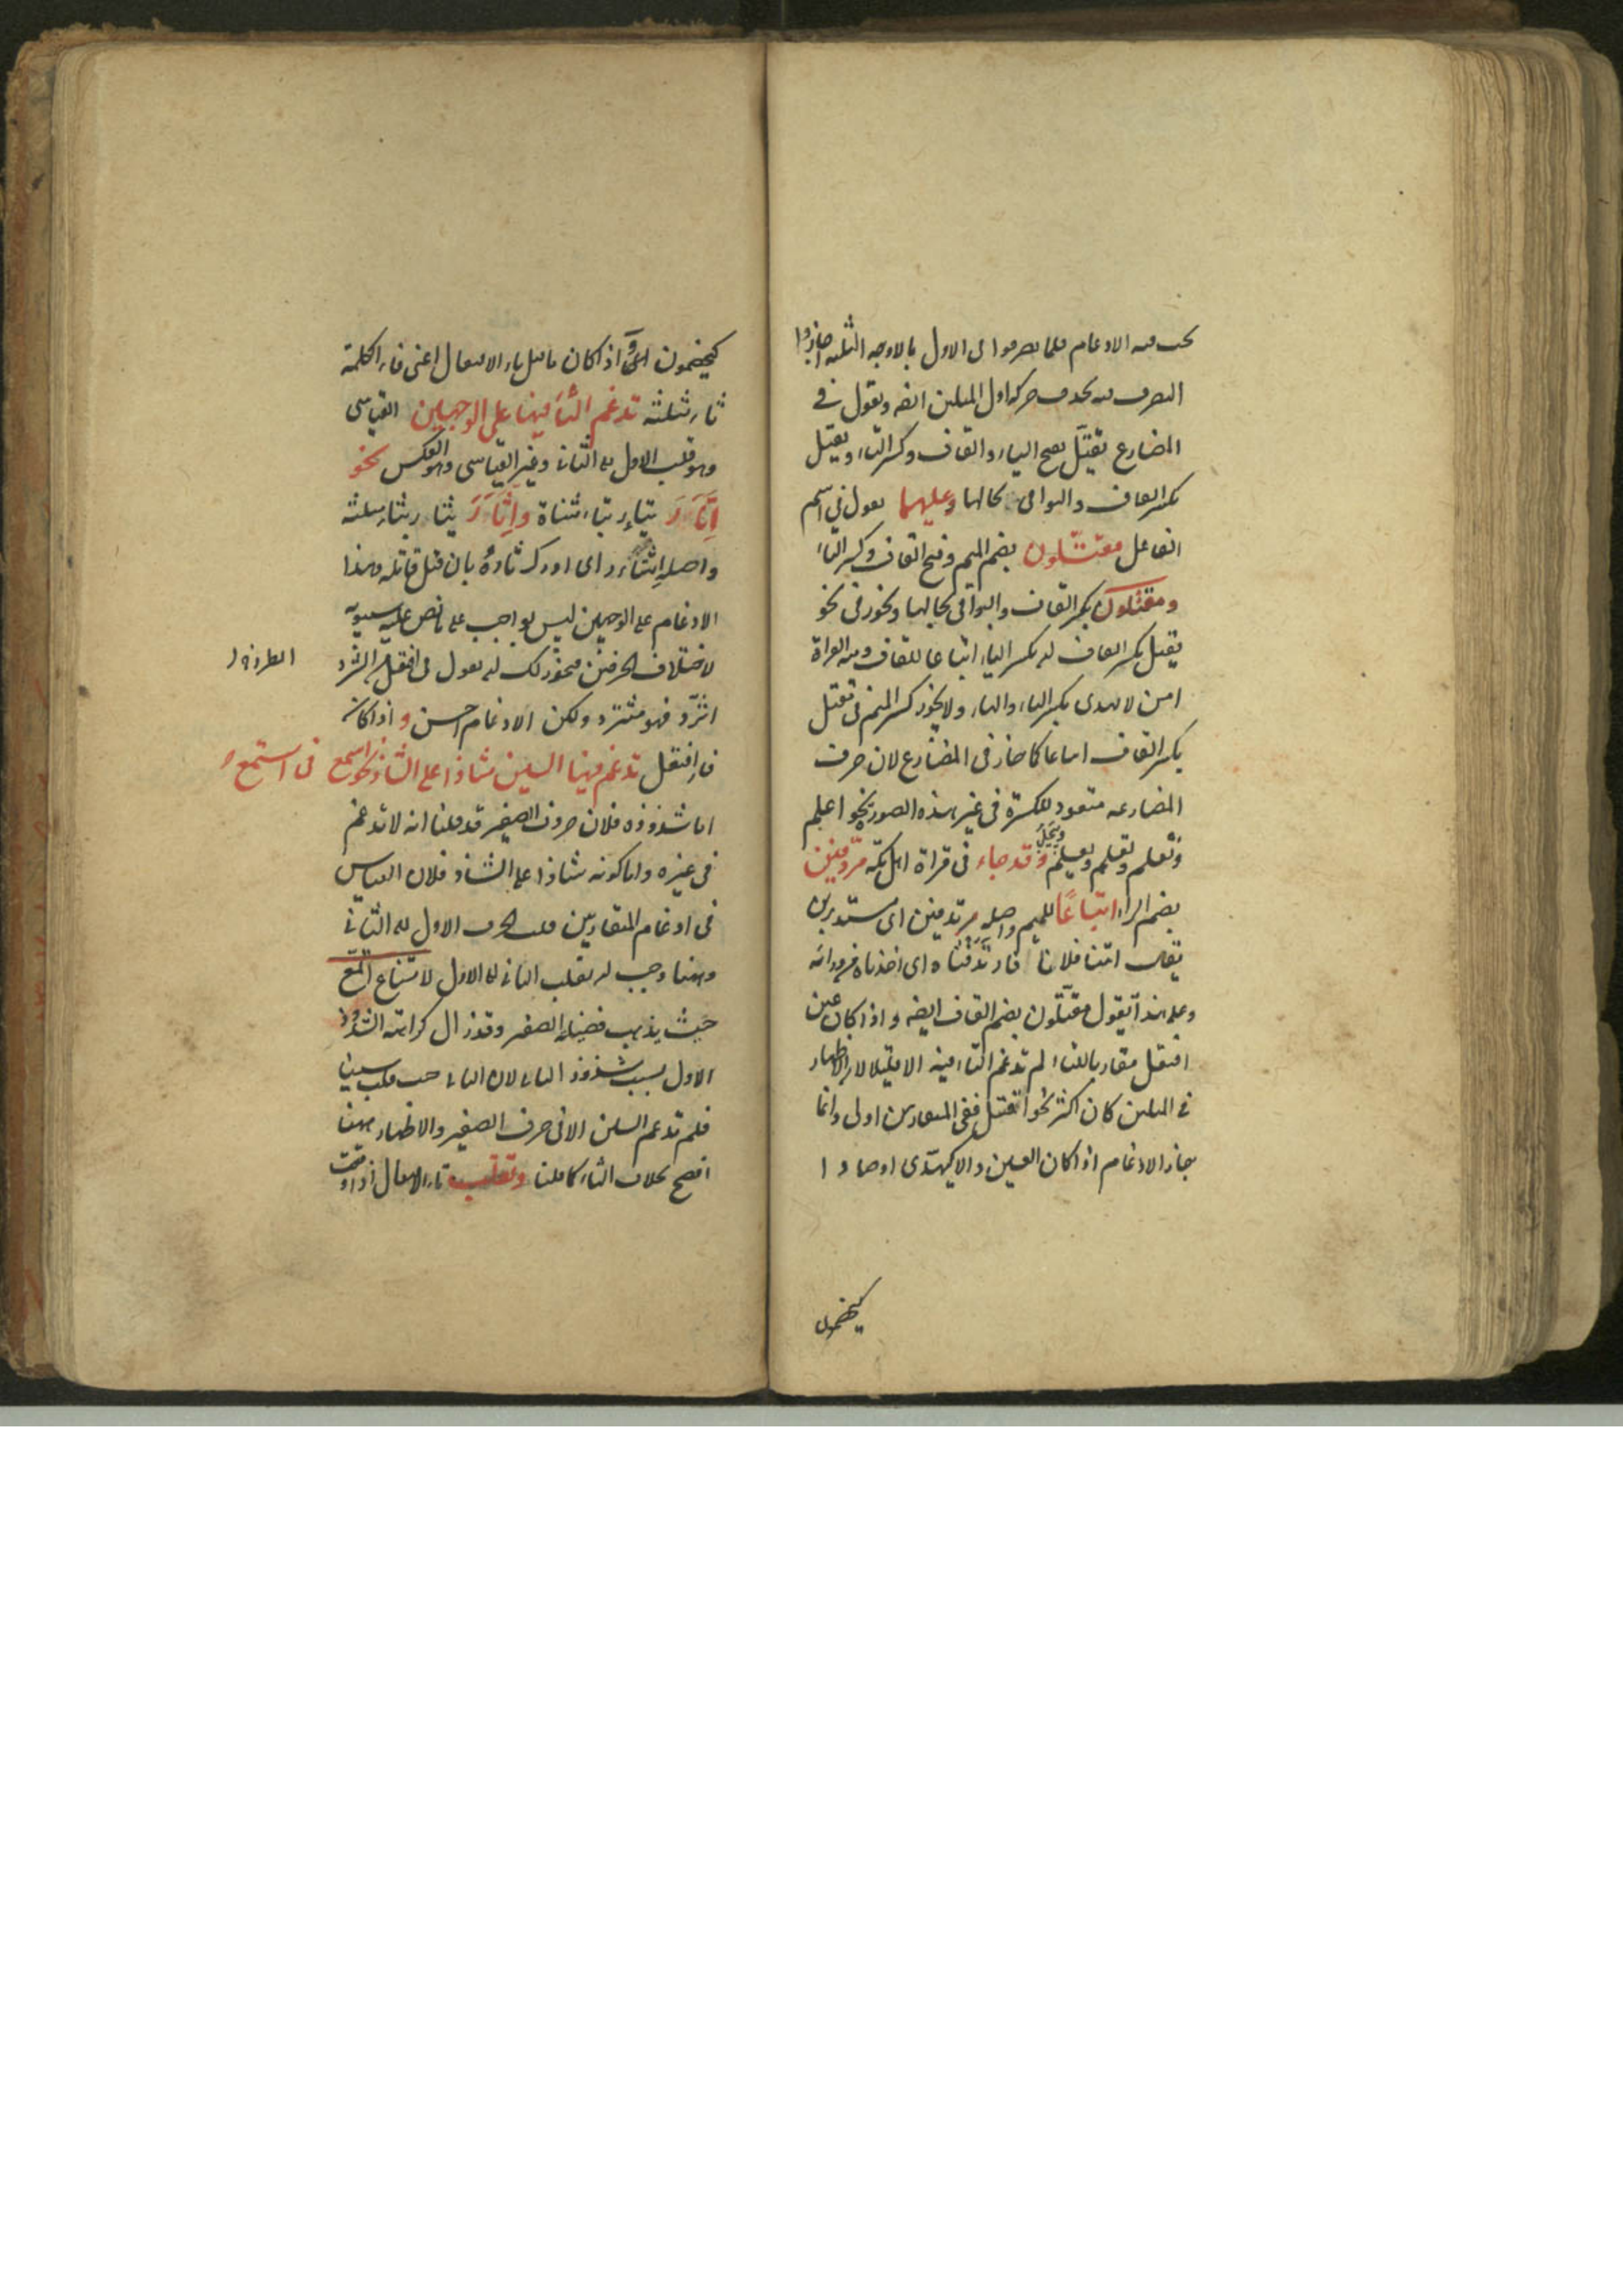 يجب فيه الادغام فلما تصرفوا في الاول بالاوجه الثلثة اجازوا
التصرف فيه بحذف حركة اول المثلين ايضه وتقول في
المضارع يقتل بفتح الياء والقاف وكسر التاء ويقتل
بكسر القاف والبواقي بحالها وعليهما تقول في اسم
الفاعل مقتلون بضم الميم وفتح القاف وكسر التاء
ومقتلون بكسر القاف والبواقي بحالها ويجوز في نحو
يقتل بكسر القاف ان يكسر الياء اتباعا للقاف ومنه القراة
امن لا يهدى بكسر الياء والهاء ولا يجوز كسر الميم في مقتل
بكسر القاف اتباعا كما جاز في المضارع لان حرف
المضارعه متعود للكسرة في غير هذه الصورة نحو اعلم
ونعلم وتعلم ويعلم وييجل وقد جاء في قراة اهل مكة مردفين
بضم الراء اتباعا للميم واصله مرتدفين اى مستدبرين
يقال اتينا فلانا فارتدفناه اى اخذناه من ورائه
وعلى هذا تقول مقتلون بضم القاف ايضه واذا كان عين
افتعل مقاربا للتاء لم تدغم التاء فيه الا قليلا لان الاظهار
في المثلين كان اكثر نحو اقتتل ففي المتقاربين اولى وانما
جاز الادغام اذا كان العين دالا كيهدى او صادا
كيخصمون
كيخصمون واذا كان ما قبل تاء الافتعال اعنى فاء الكلمة
ثاء مثلثه تدغم الثاء فيها على الوجهين القياسى
وهو قلب الاول الى الثانى وغير القياسى وهو العكس نحو
اتأر يتأر بتاء مثناة واثأر يثأر بثاء مثلثه
واصله اثتأر اى ادرك ثاره بان قتل قاتله وهذا
الادغام على الوجهين ليس بواجب على ما نص عليه سيبويه
لاختلاف الحرفين فيجوز لك ان تقول في افتعل من الثرد
اثترد فهو مثترد ولكن الادغام احسن واذا كان
فاء افتعل تدغم فيها السين شاذا على الشاذ نحو اسمع في استمع
اما شذوذه فلان حروف الصفير قد قلنا انه لا تدغم
في غيره واما كونه شاذا على الشاذ فلان القياس
في ادغام المتقاربين قلب الحرف الاول الى الثاني
وههنا وجب ان تقلب الثاني الى الاول لامتناع اتمع
حيث يذهب فضيلة الصفير وقد زال كراهة الشذوذ
الاول بسبب شذوذ الثانى لان الثانى حيث قلب سينا
فلم تدغم السين الا في حرف الصفير والاظهار ههنا
افصح بخلاف الثاء كما قلنا وتقلب تاء الافتعال اذا وقعت